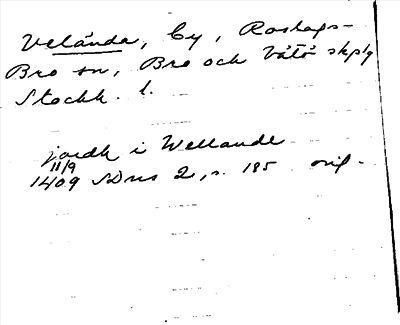 Velånda, by, Roslags-
Bro sn, Bro och Vätö skplg
Stockh. l.
jordh i Wellande
11/9
1409 SDns 2, s. 185 orig.